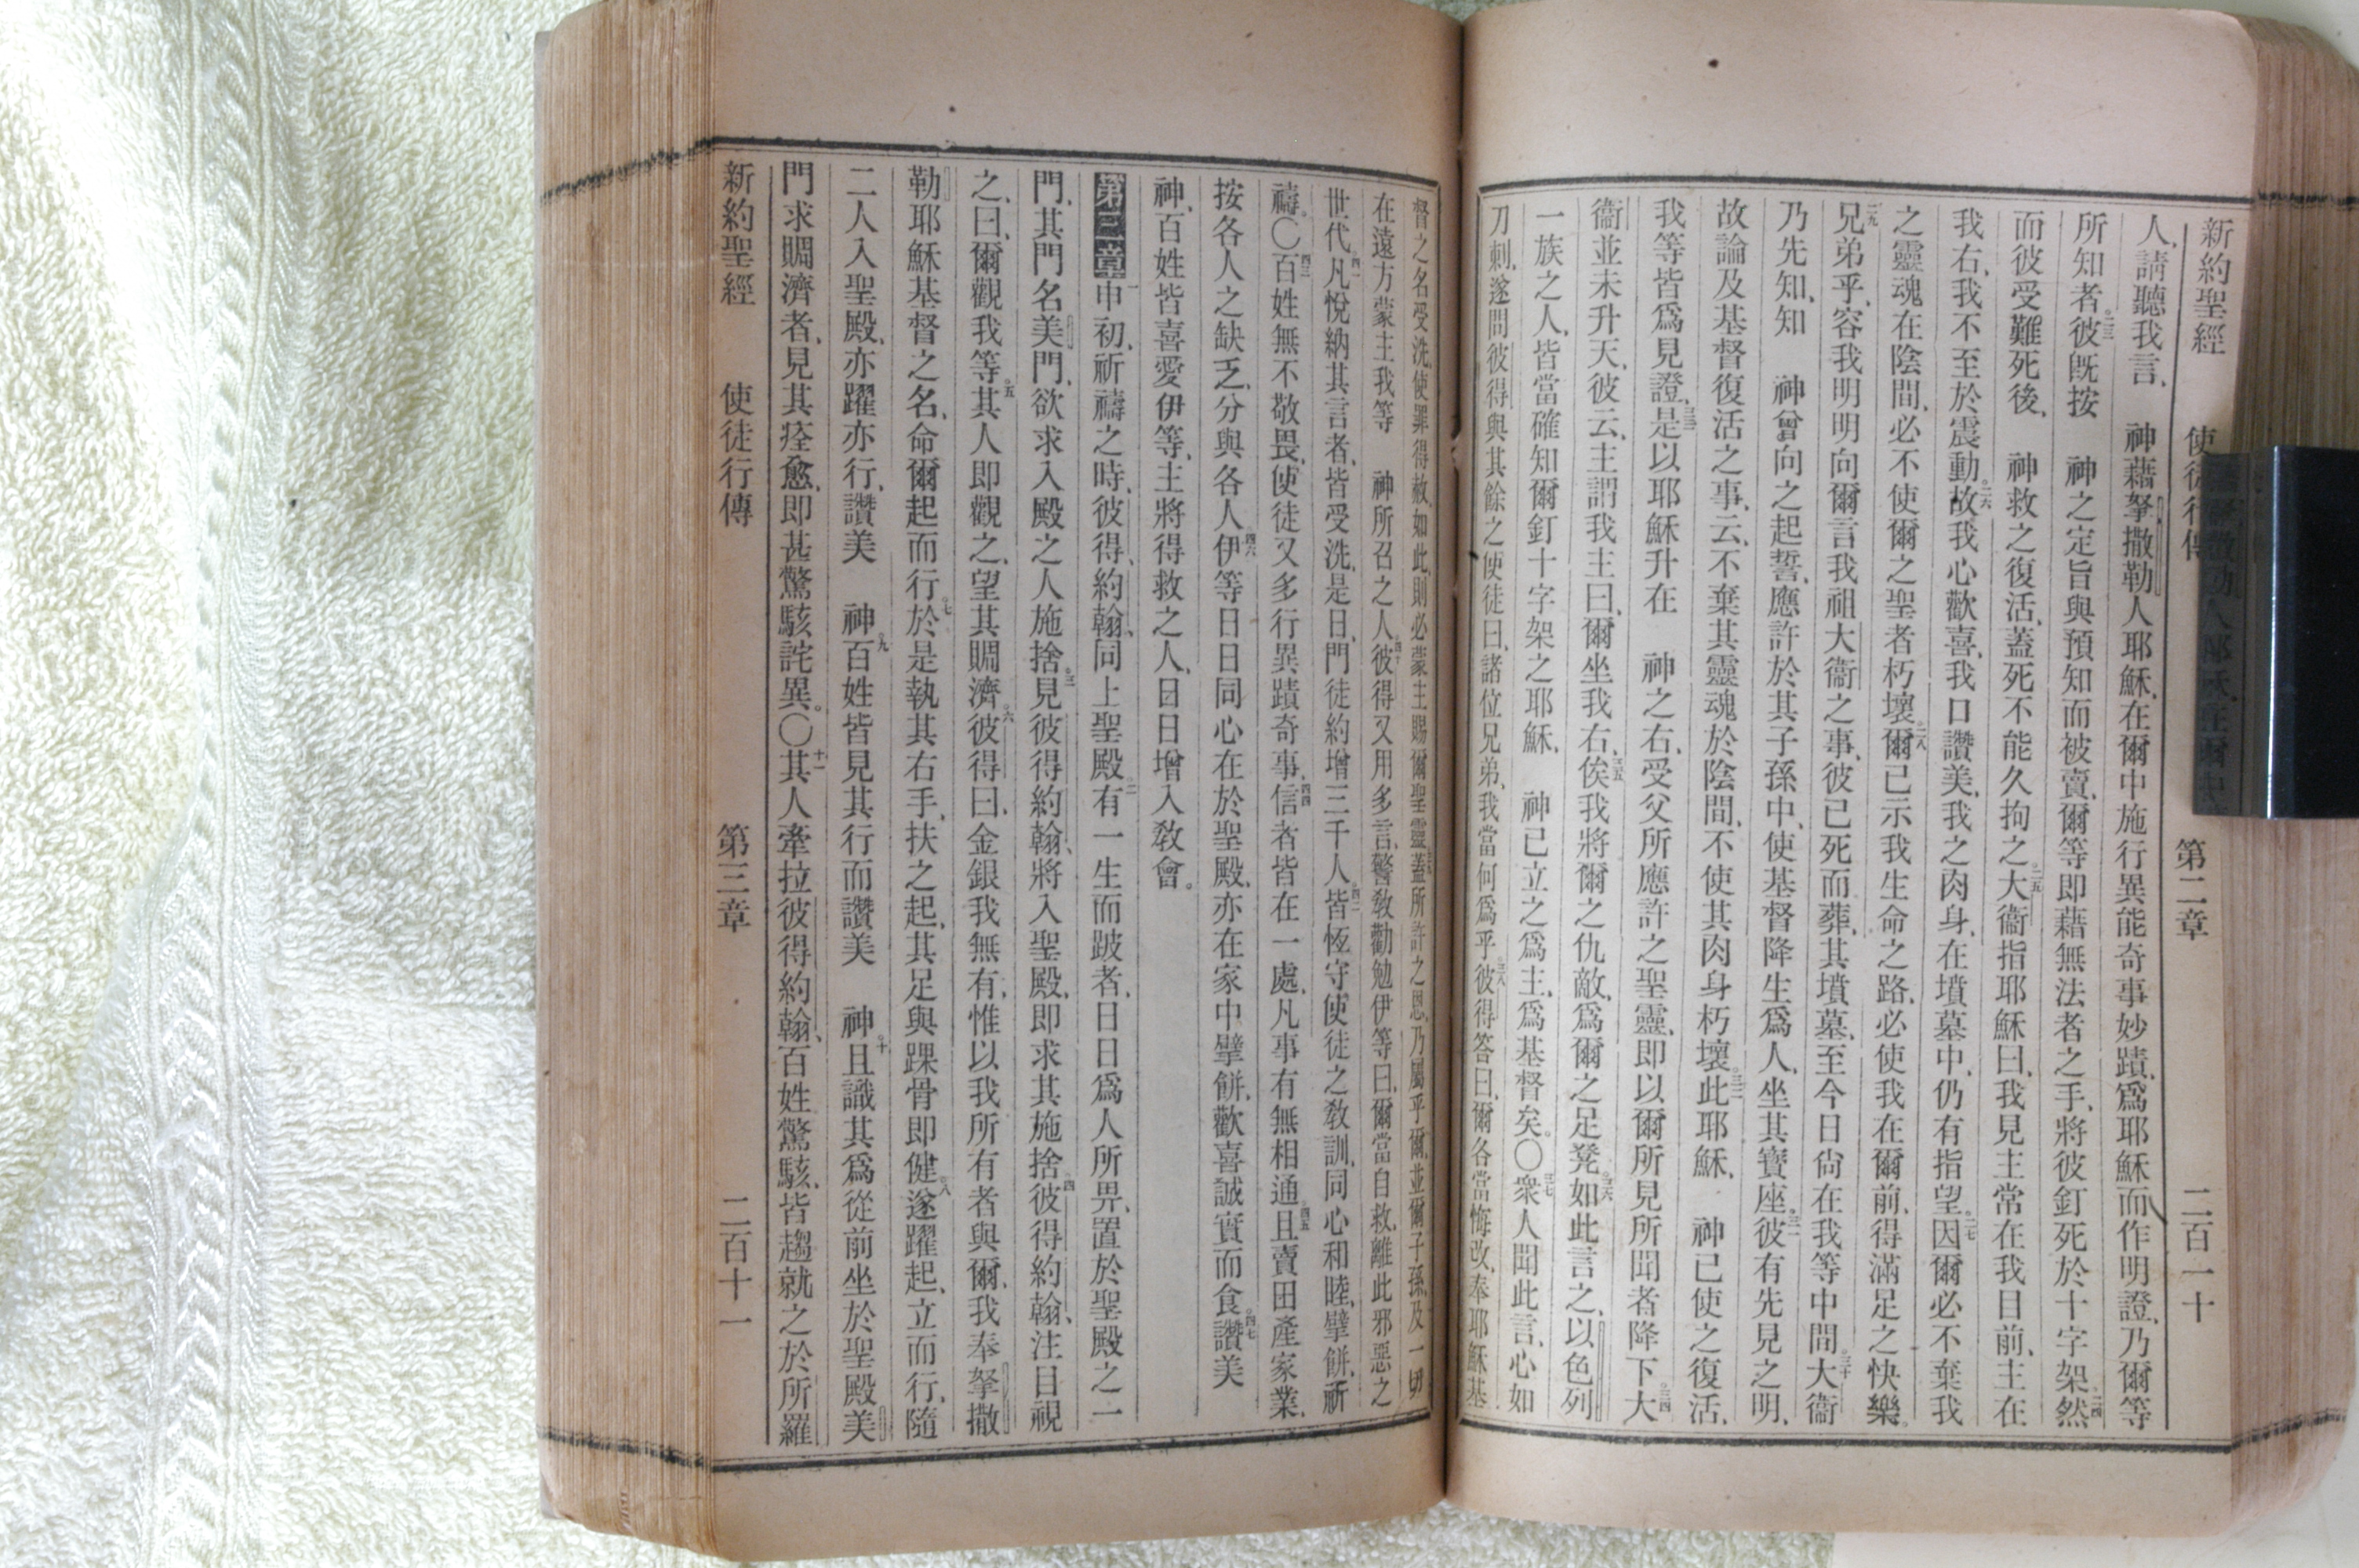 新約聖經 使徒行傳 第二章 二百一十
人、請聽我言、 神藉拏撒勒人耶穌、在爾中施行異能奇事妙蹟、爲耶穌而作明證、乃爾等
所知者、二三彼旣按 神之定旨與預知而被賣、爾等即藉無法者之手、將彼釘死於十字架、二四然
而彼受難死後、 神救之復活、蓋死不能久拘之、二五大衞指耶穌曰、我見主常在我目前、主在
我右、我不至於震動、二六故我心歡喜、我口讚美、我之肉身、在墳墓中、仍有指望、二七因爾必不棄我
之靈魂在陰間、必不使爾之聖者朽壞、二八爾已示我生命之路、必使我在爾前、得滿足之快樂。
二九兄弟乎、容我明明向爾言我祖大衞之事、彼已死而葬、其墳墓、至今日尙在我等中間、三十大衞
乃先知、知 神曾向之起誓、應許於其子孫中、使基督降生爲人、坐其寶座、三一彼有先見之明、
故論及基督復活之事、云、不棄其靈魂於陰間、不使其肉身朽壞、三二此耶穌、 神已使之復活、
我等皆爲見證、三三是以耶穌升在 神之右、受父所應許之聖靈、即以爾所見所聞者降下、三四大
衞並未升天、彼云、主謂我主曰、爾坐我右、三五俟我將爾之仇敵、爲爾之足凳、三六如此言之、以色列
一族之人、皆當確知爾釘十字架之耶穌、 神已立之爲主、爲基督矣。〇三七衆人聞此言、心如
刀刺、遂問彼得與其餘之使徒曰、諸位兄弟、我當何爲乎、三八彼得答曰、爾各當悔改、奉耶穌基
督之名受洗、使罪得赦、如此、則必蒙主賜爾聖靈、三九蓋所許之恩、乃屬乎爾、並爾子孫、及一切
在遠方蒙主我等 神所召之人、四十彼得又用多言、警敎勸勉伊等曰、爾當自救、離此邪惡之
世代、四一凡悅納其言者、皆受洗、是日、門徒約增三千人、四二皆恆守使徒之敎訓、同心和睦、擘餅、祈
禱。〇四三百姓無不敬畏、使徒又多行異蹟奇事、四四信者皆在一處、凡事有無相通、四五且賣田產家業、
按各人之缺乏、分與各人、四六伊等日日同心在於聖殿、亦在家中擘餅、歡喜誠實而食、四七讚美
神、百姓皆喜愛伊等、主將得救之人、日日增入敎會。
第三章一申初、祈禱之時、彼得、約翰、同上聖殿、二有一生而跛者、日日爲人所畀、置於聖殿之一
門、其門名美門、欲求入殿之人施捨、三見彼得約翰、將入聖殿、即求其施捨、四彼得約翰、注目視
之、曰、爾觀我等、五其人即觀之、望其賙濟、六彼得曰、金銀我無有、惟以我所有者與爾、我奉拏撒
勒耶穌基督之名、命爾起而行、七於是執其右手、扶之起、其足與踝骨即健、八遂躍起、立而行、隨
二人入聖殿、亦躍亦行、讚美 神、九百姓皆見其行而讚美 神、十且識其爲從前坐於聖殿美
門求賙濟者、見其痊愈、即甚驚駭詫異。〇十一其人牽拉彼得約翰、百姓驚駭、皆趨就之於所羅
新約聖經 使徒行傳 第三章 二百十一